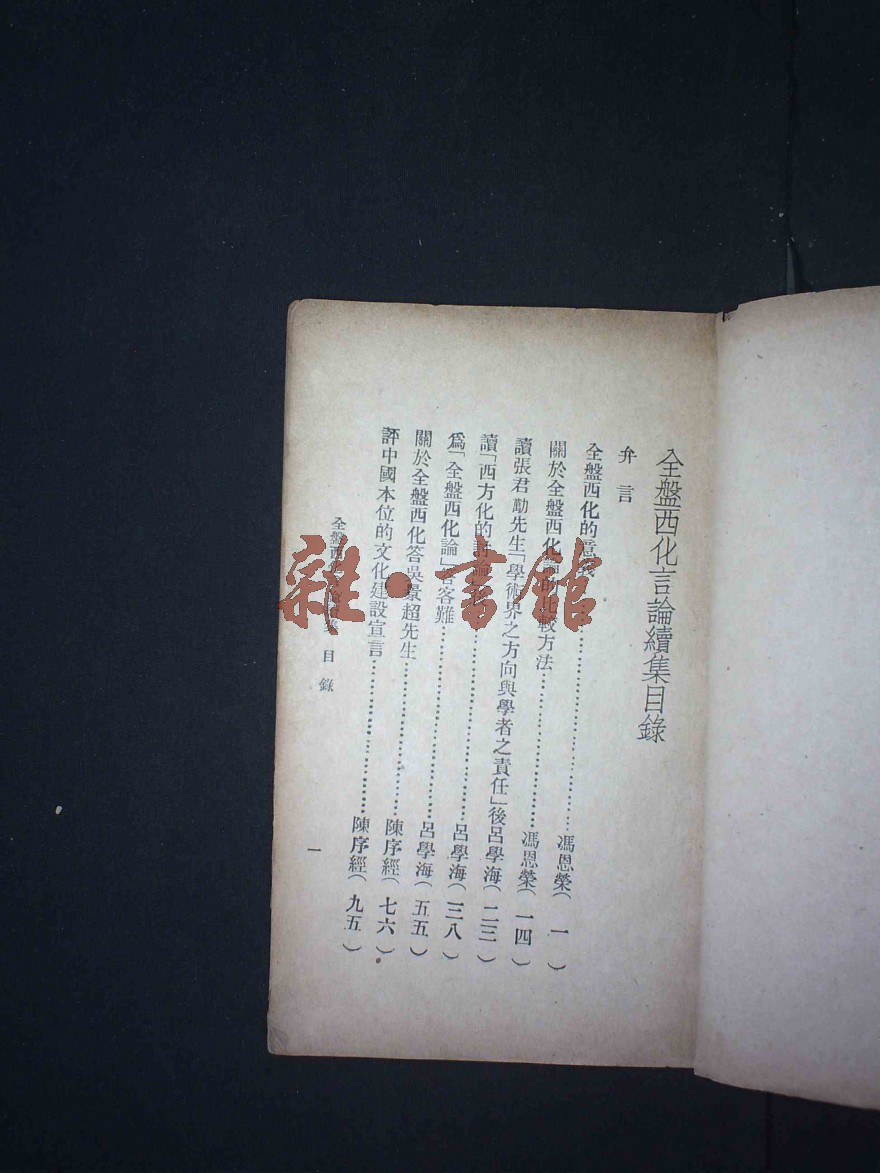 全盤西化言論續集目錄
弁言
全盤西化的意義……馮恩榮（一）
關於全盤西化 比較方法……馮恩榮（一四）
讀張君勱先生「學術界之方向與學者之責任」後呂學海（二三）
讀「西方化的討論……呂學海（三八）
爲「全盤西化論」答客難……呂學海（五五）
關於全盤西化答吳景超先生……陳序經（七六）
評中國本位的文化建設宣言……陳序經（九五）
全盤西化 集 目錄
一
雜·書館